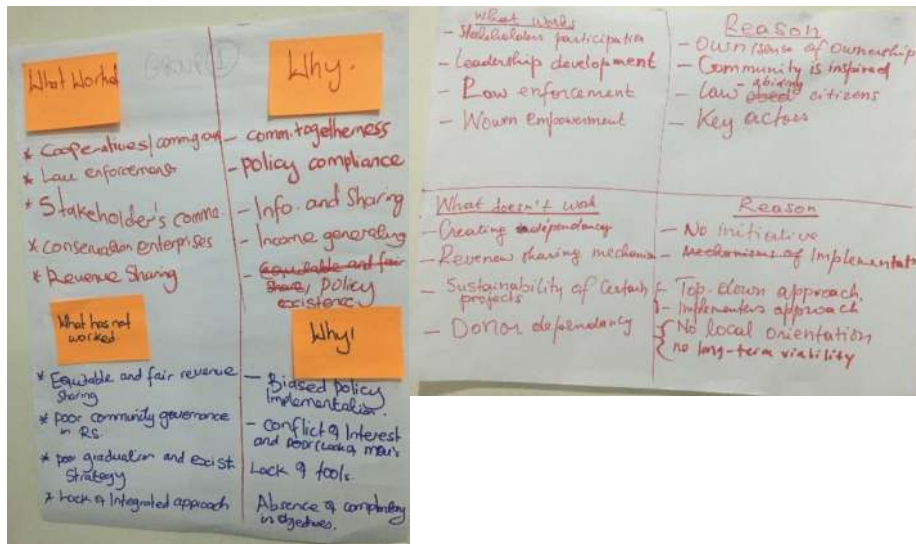 GROUP 1
What Worked
Why.
* Cooperatives/
* Law enforcement
* Stakeholder's comm.
* Conservation enterprises
* Revenue Sharing
- comm. togetherness
- policy compliance
- Info. and Sharing
- Income generating
- Equitable and fair
share, policy
existency
What has not
worked.
Why!
* Equitable and fair revenue
sharing
* poor community governance
in RS.
* poor graduation and exist
Strategy
* Lack of Integrated approach
- Biased policy
Implementation.
- Conflict of Interest
and poor (Lack of
Lack of tools.
Absence of
in objectives.
What works
- Stakeholders participation
- Leadership development
- Law enforcement
- Women Empowerment
Reason
- Own/sense of ownership
- Community is inspired
- Law-abiding citizens
- Key actors
What doesn't work
- Creating dependancy
- Revenew sharing mechanism
- Sustainability of Certain
projects
- Donor dependancy
Reason
- No initiative
- Mechanisms of Implementat
- Top-down approach.
- Implementers approach
No local orientation
no long-term viability